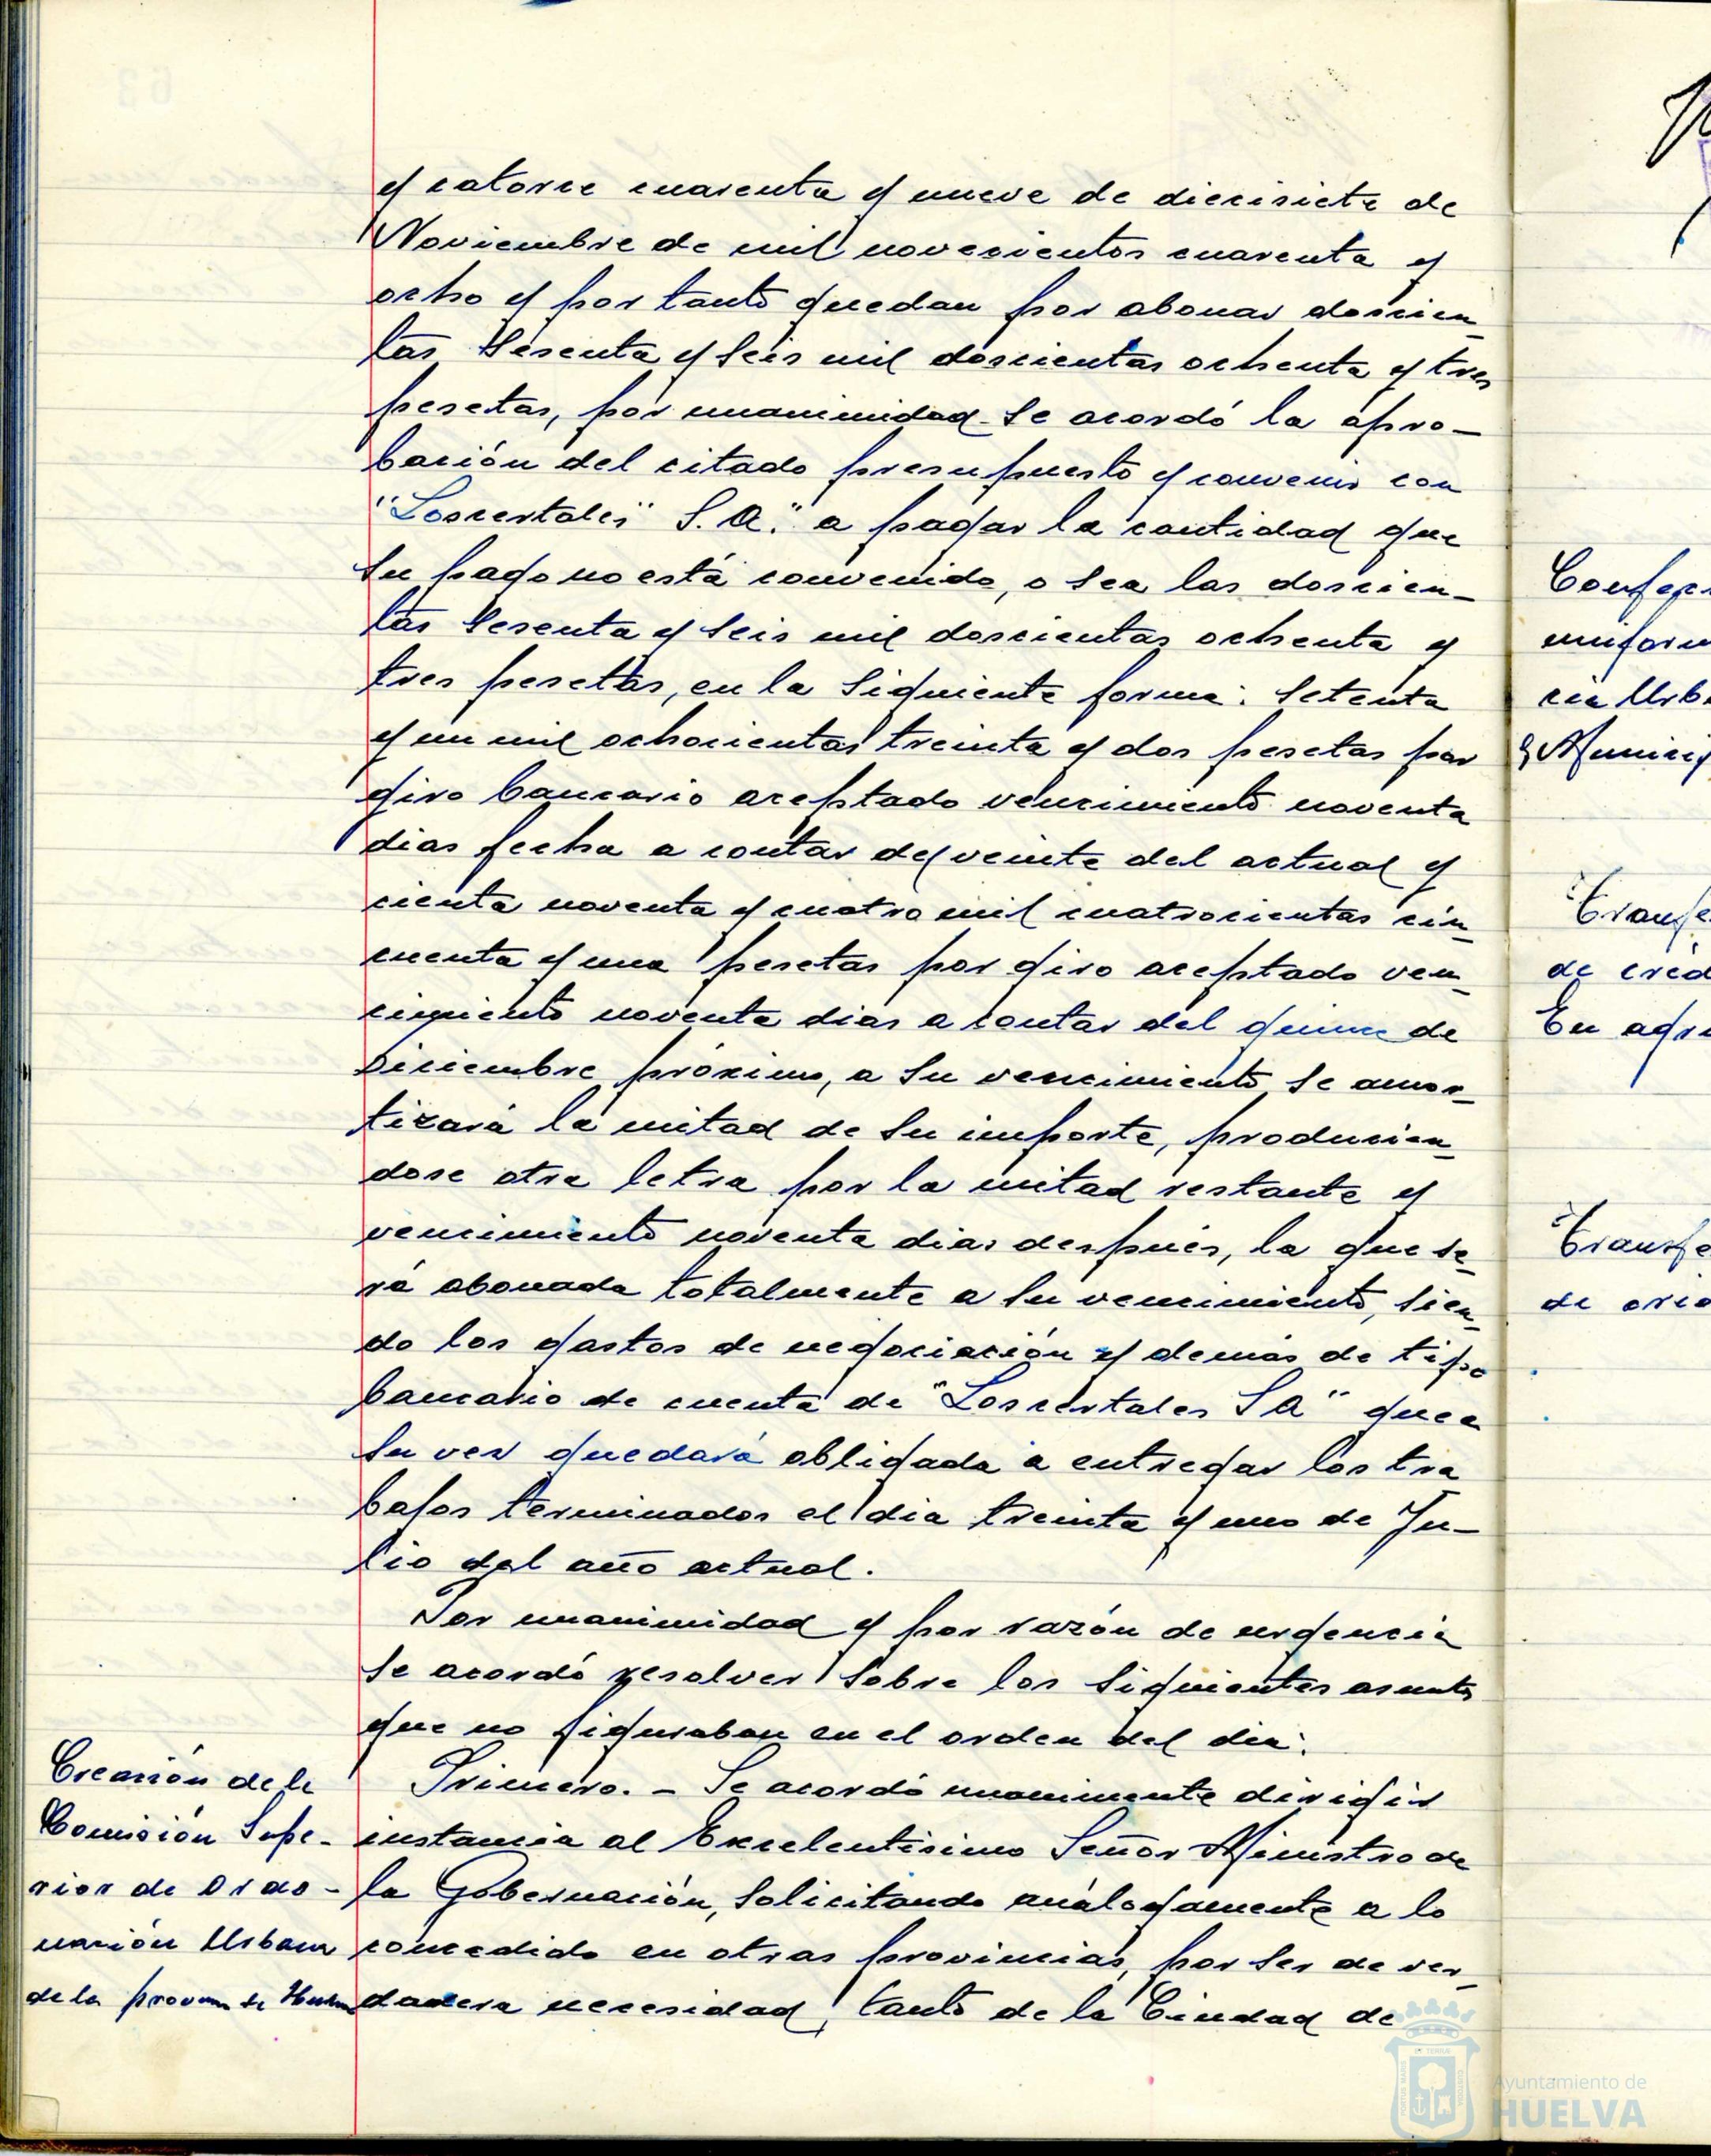 y catorce cuarenta y nueve de diecisiete de
Noviembre de mil novecientos cuarenta y
ocho y por tanto quedan por abonar doscien_
tas sesenta y seis mil doscientas ochenta y tres
pesetas, por unanimidad se acordó la apro-
bación del citado presupuesto y convenir con
"Loscertales" S. A." a pagar la cantidad que
su pago no está convenido, o sea las doscien-
tas sesenta y seis mil doscientas ochenta y
tres pesetas, en la siguiente forma: setenta
y un mil ochocientas treinta y dos pesetas por
giro bancario aceptado vencimiento noventa
dias fecha a contar del veinte del actual y
ciento noventa y cuatro mil cuatrocientas cin_
cuenta y una pesetas por giro aceptado ven_
cimiento noventa dias a contar del quince de
Diciembre próximo, a su vencimiento se amor_
tizará la mitad de su importe, producien_
dose otra letra por la mitad restante y
vencimiento noventa dias después, la que se_
rá abonada totalmente a su vencimiento, sien_
do los gastos de negociación y demás de tipo
bancario de cuenta de "Loscertales S A" que a
su vez quedará obligada a entregar los tra_
bajos terminados el dia treinta y uno de Ju-
lio del año actual.
Por unanimidad y por razón de urgencia
se acordó resolver sobre los siguientes asuntos
que no figuraban en el orden del dia:
Creación de la
Comisión Supe-
rior de Ordo-
nación Urbana
de la de Huelva
Primero. - Se acordó unanimente dirigir
instancia al Excelentisimo Señor Ministro de
la Gobernación, solicitando análogamente a lo
concedido en otras provincias, por ser de ver_
dadera necesidad, tanto de la Ciudad de
Confec
uniform
cia Urb
y Munici
Transfe
de créd
En agr
Transfe
de cred
Ayuntamiento de
HUELVA